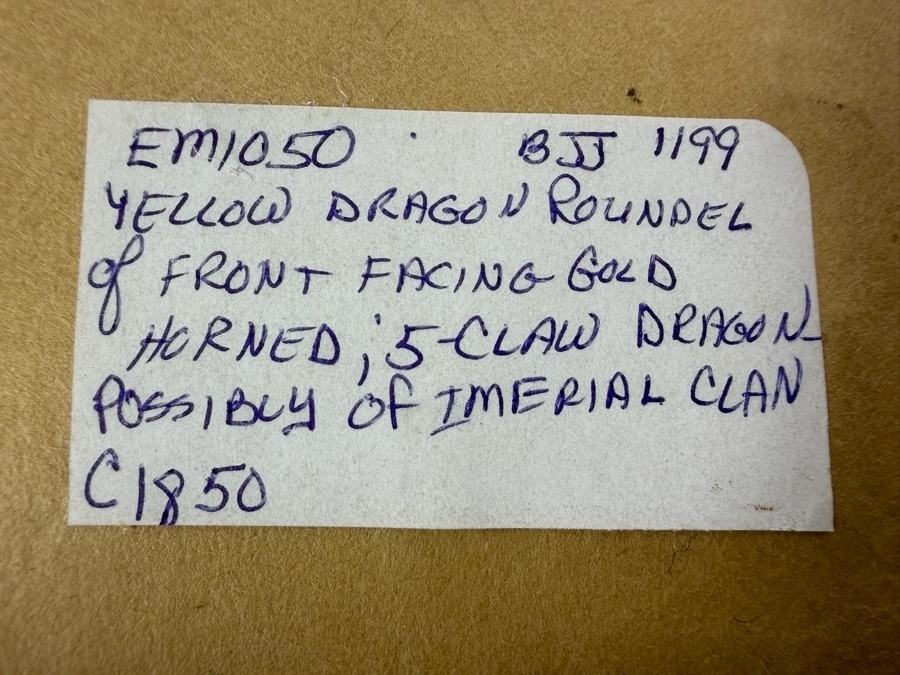 EM1050 BJJ 1199
YELLOW DRAGON ROUNDEL
of FRONT FACING GOLD
HORNED; 5-CLAW DRAGON-
POSSIBLY Of IMERIAL CLAN
C1850